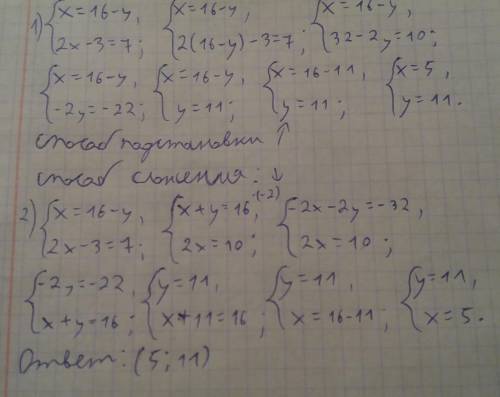 1) {x=16-y, 2x-3=7; {x=16-y, 2(16-y)-3=7; {x=16-y, 32-2y=10;
{x=16-y, -2y=-22; {x=16-y, y=11; {x=16-11, y=11; {x=5, y=11.
способ подстановки ↑
способ сложения: ↓
2) {x=16-y, 2x-3=7; {x+y=16, ·(-2) 2x=10; {-2x-2y=-32, 2x=10;
{-2y=-22, x+y=16; {y=11, x+11=16; {y=11, x=16-11; {y=11, x=5.
Ответ: (5; 11)